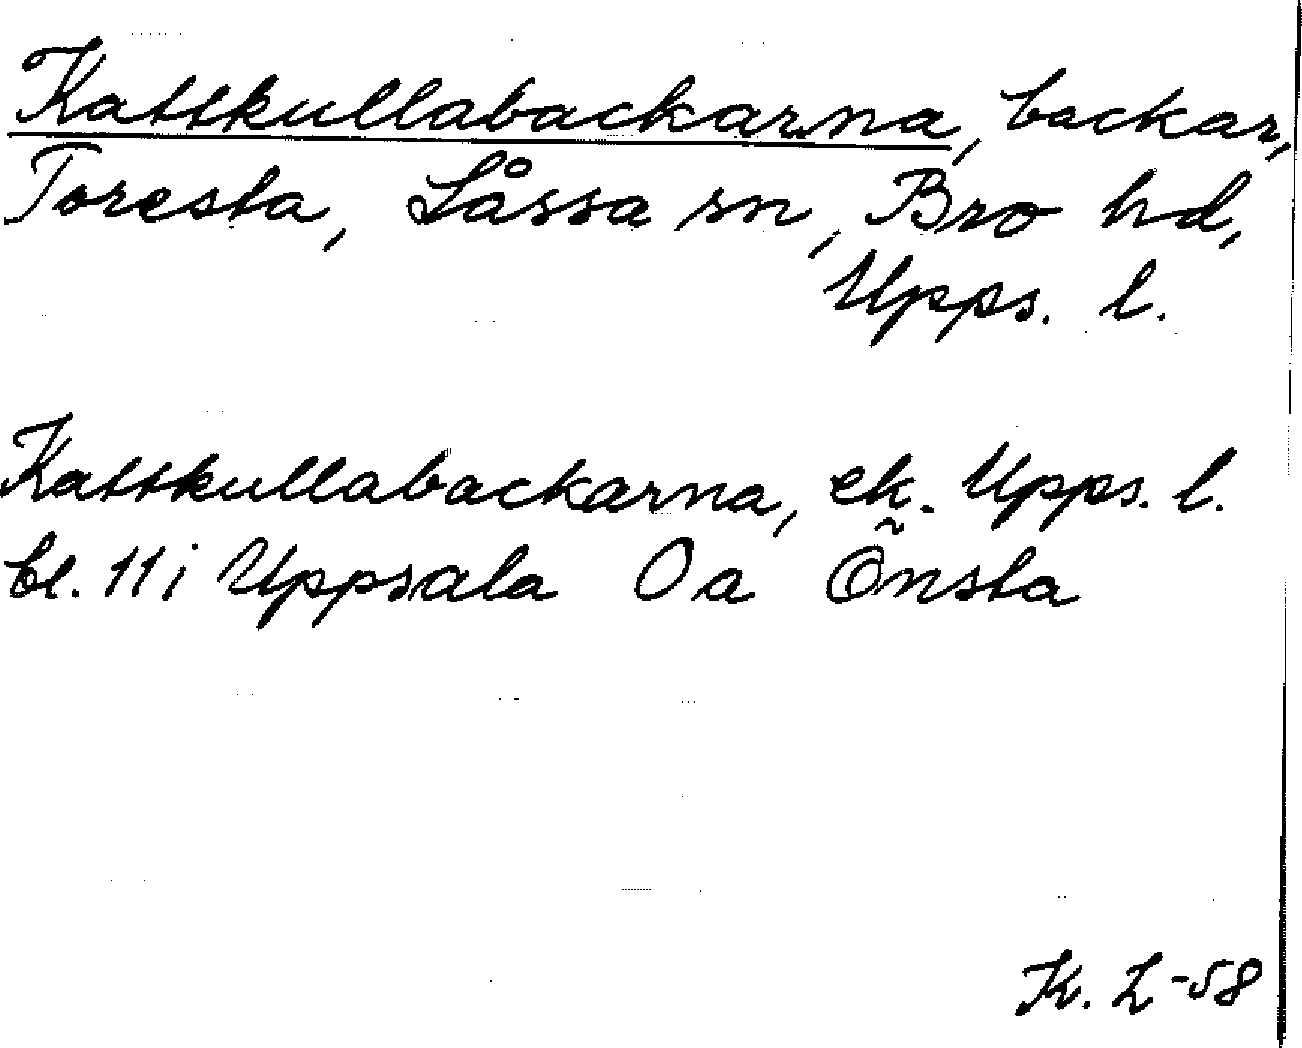 Kattkullabackarna, backar,
Toresta, Låssa sn, Bro hd,
Upps. l.
Kattkullabackarna, ek. Upps. l.
bl. 11 i Uppsala Oa Õnsta
K. L-58